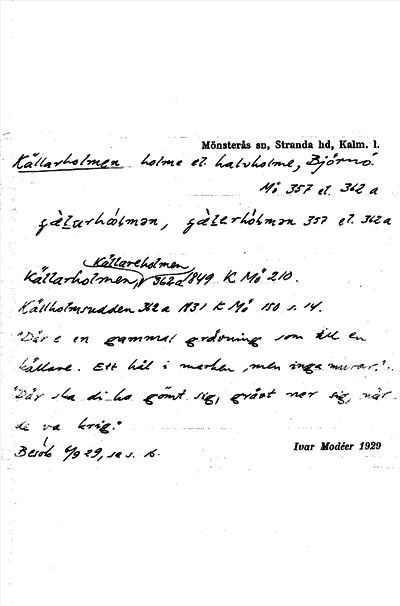 Mönsterås sn, Stranda hd, Kalm. l.
Källarholmen holme el. halvholme, Björnö.
Mö 357 el. 362 a
357 el. 362a
Källareholmen
Källarholmen, 362a 1849 K Mö 210.
Källholmsudden 362 a 1831 K Mö 150 s. 14.
"Där e en gammal grävning som till en
källare. Ett hål i marken, men inga murar."
"Där ska di ha gömt sig, grävt ner sig, när
de va krig."
Besök 6/9 29, sa s. b.
Ivar Modéer 1929